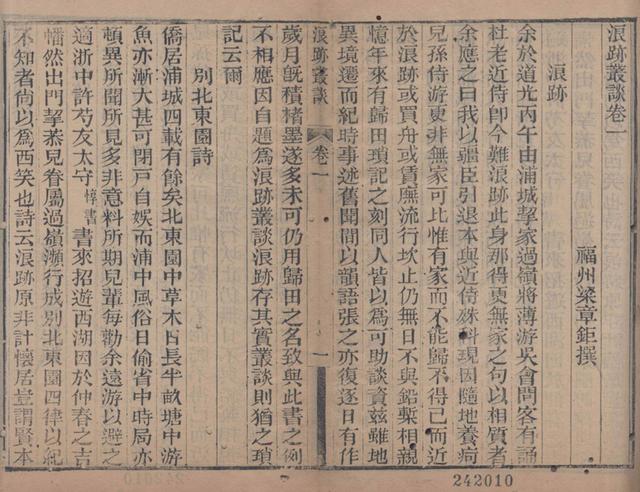 浪跡叢談卷一
福州梁章鉅撰
浪跡
余於道光丙午由浦城挈家過嶺將薄游吳會問客有誦
杜老近侍即今難浪跡此身那得更無家之句以相質者
余應之曰我以疆臣引退本與近侍殊科現因隨地養疴
兒孫侍游更非無家可比惟有家而不能歸不得已而近
於浪跡或買舟或賃廡流行坎止仍無日不與鉛槧相親
憶年來有歸田瑣記之刻同人皆以爲可助談資茲雖地
異境遷而紀時事述舊聞間以韻語張之亦復逐日有作
浪跡叢談
卷一
一
歲月旣積楮墨遂多未可仍用歸田之名致與此書之例
不相應因自題爲浪跡叢談浪跡存其實叢談則猶之瑣
記云爾
別北東園詩
僑居浦城四載有餘矣北東園中草木日長半畝塘中游
魚亦漸大甚可閉戸自娛而浦中風俗日偷省中時局亦
頓異所聞所見多非意料所期兒輩每勸余遠游以避之
適浙中許芍友太守惇書書來招遊西湖因於仲春之吉
幡然出門挈恭兒眷屬過嶺瀕行成別北東園四律以紀
不知者尙以爲西笑也詩云浪跡原非計懷居豈謂賢本
242010